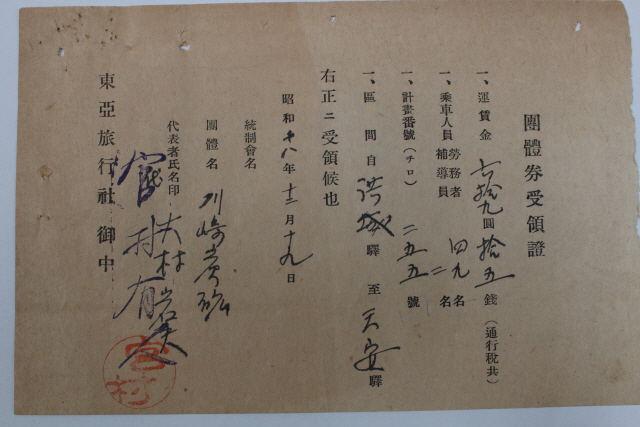 團體券受領證
一、運賃金 七拾九圓拾五錢(通行稅共)
一、乘車人員 勞務者 四九名
補導員 二名
一、計畫番號(チロ) 二五五 號
一、區間 自 洪城 驛 至 天安 驛
右正ニ受領候也
昭和十八年十二月十九日
統制會名
團體名 川崎
代表者氏名印
東亞旅行社 御中
宮村